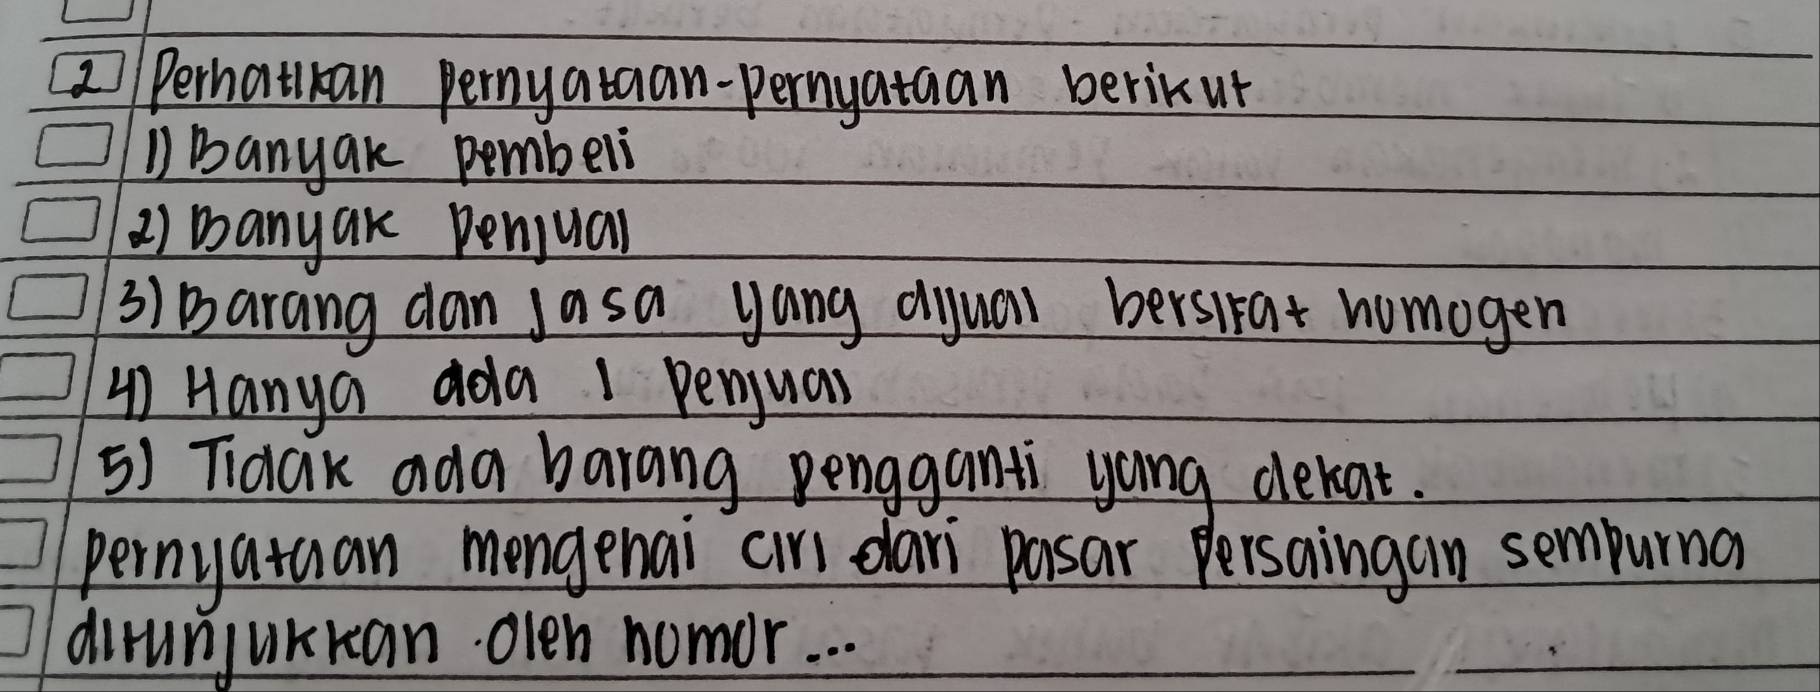 2 Perhatikan pernyataan-pernyataan berikut
1) Banyak pembeli
2) Banyak penjual
3) Barang dan jasa yang dijual bersifat homogen
4) Hanya ada 1 penjual
5) Tidak ada barang pengganti yang dekat.
pernyataan mengenai ciri dari pasar persaingan sempurna
ditunjukkan oleh nomor...